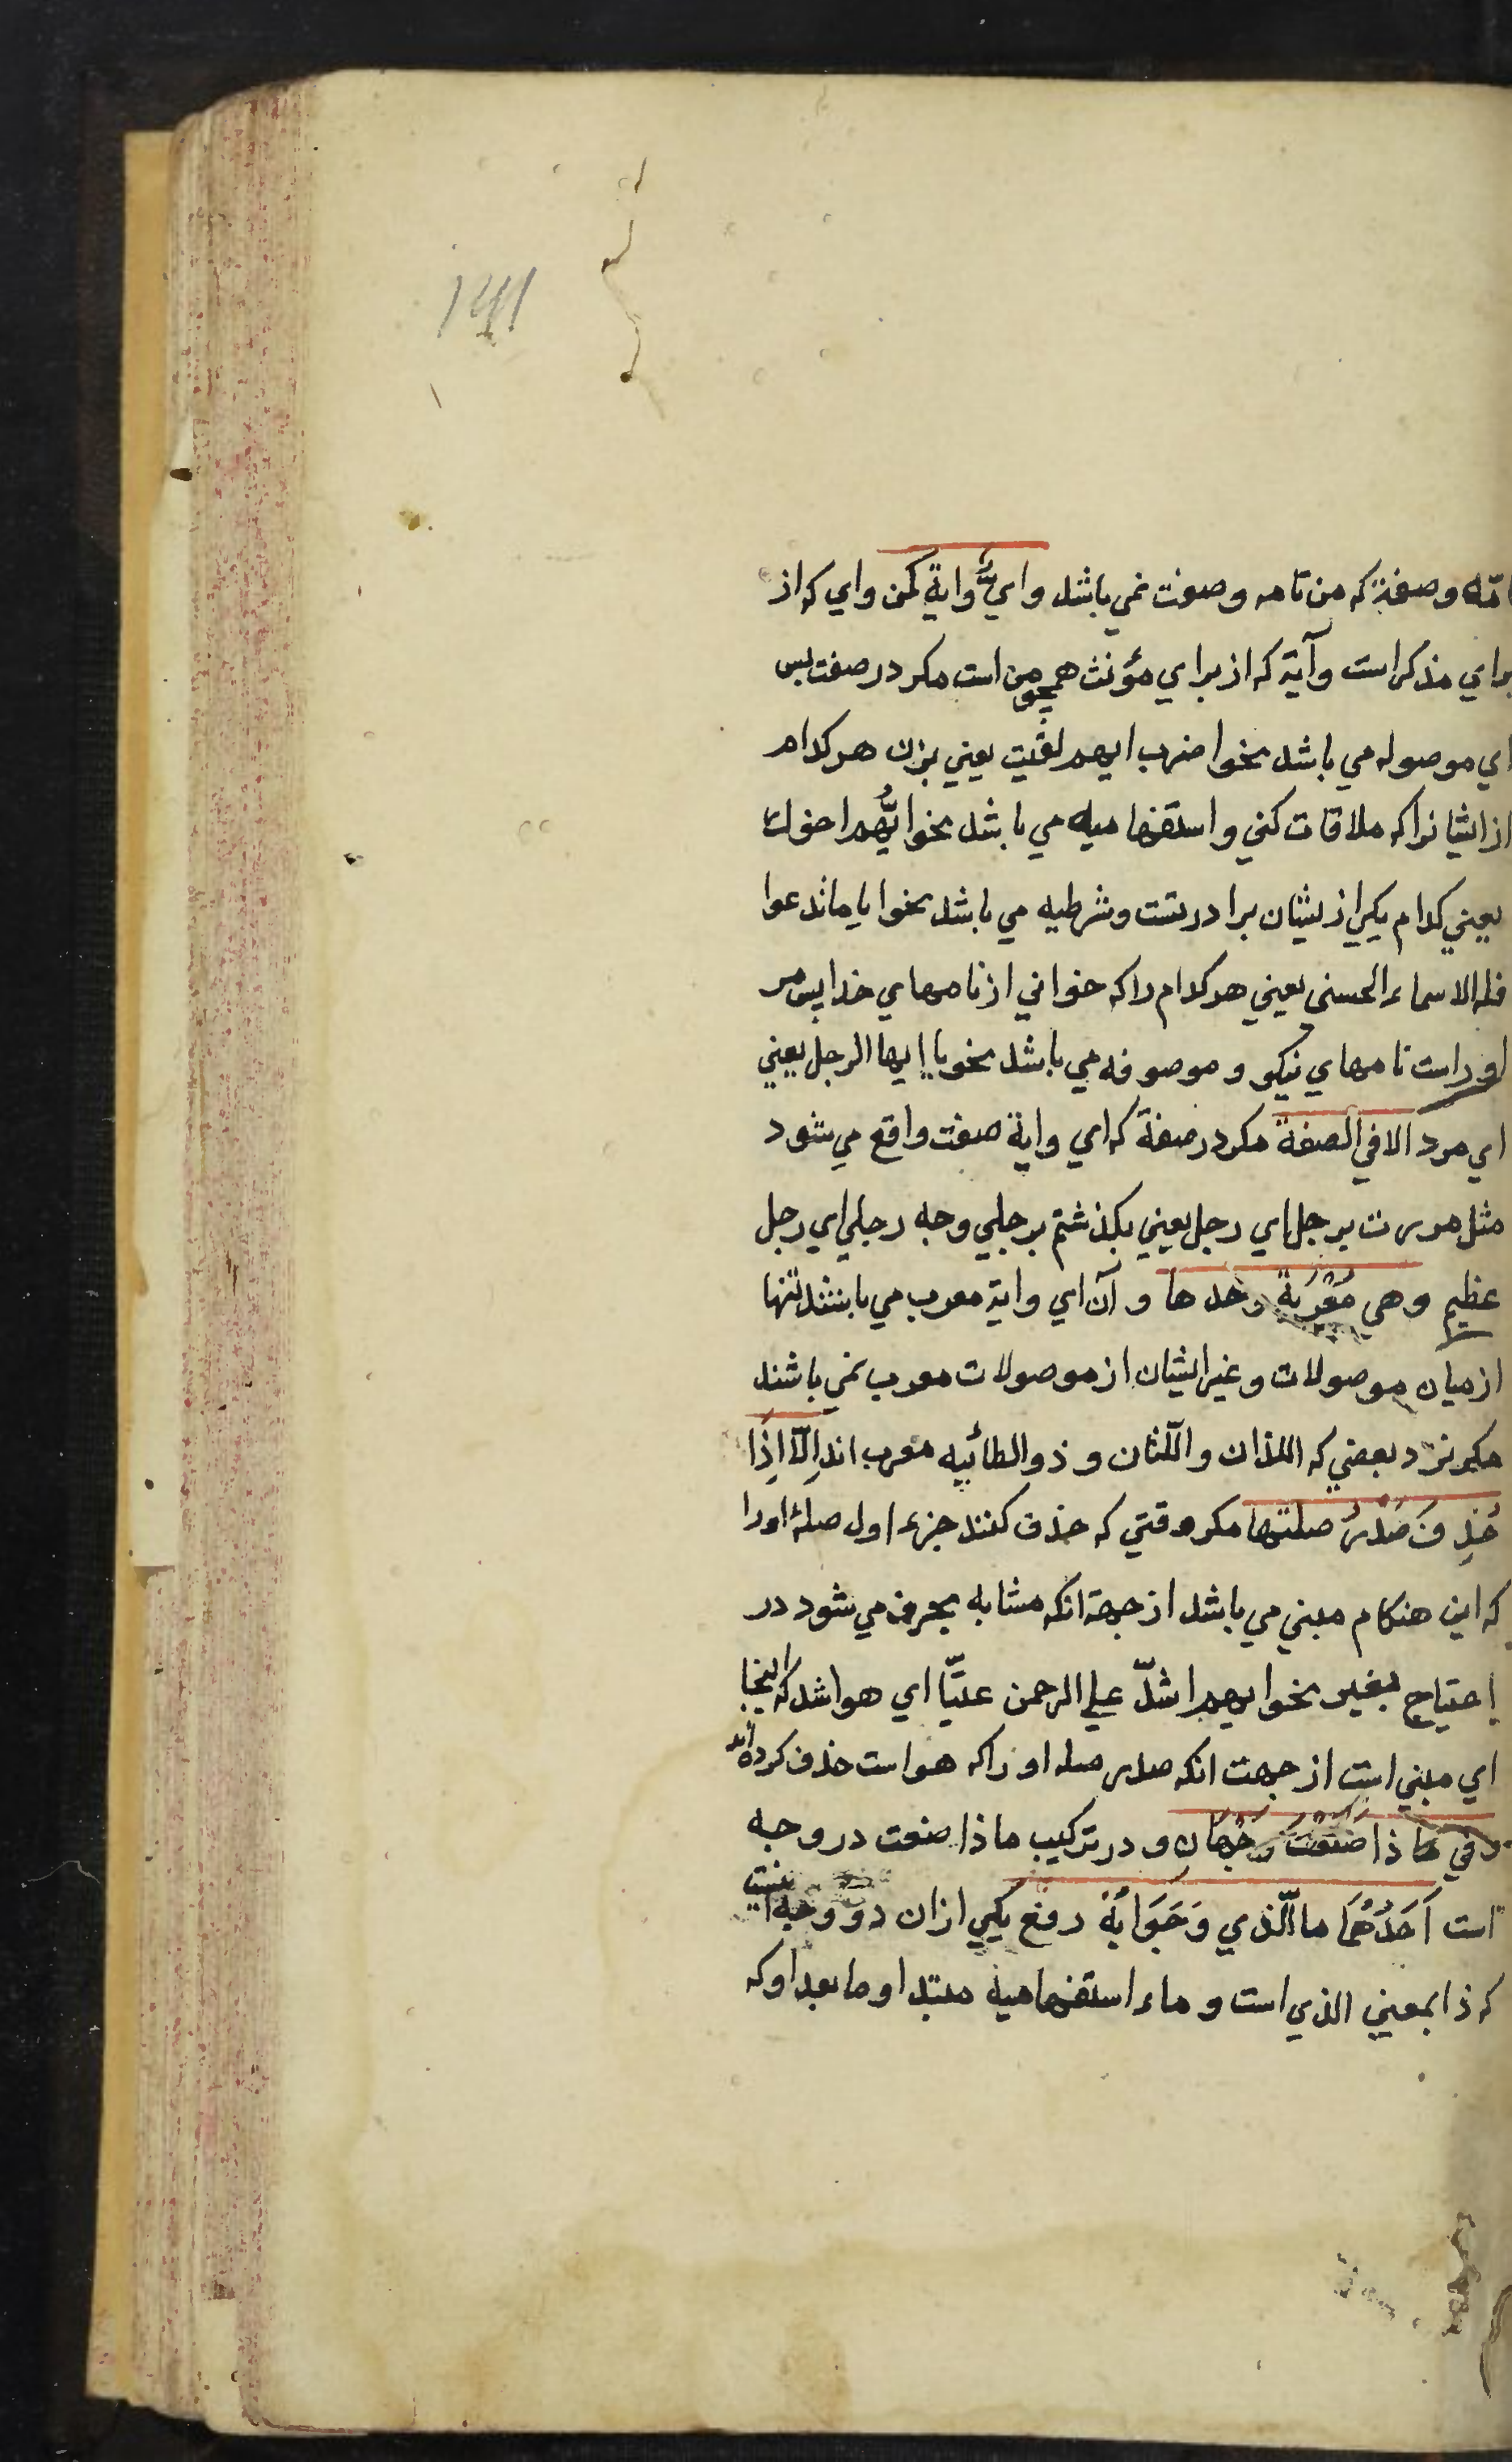 تامّه وصفة که من تامه وصفت نمي باشد وايٌّ واية کمن واي که از
براي مذکر است وآية که از براي مؤنث همچو من است مکر در صفت بس
اي موصوله مي باشد نحو اضرب ايهم لقيت يعني بزن هر کدام
از ايشانرا که ملاقات کني و استفهاميه مي باشد نحو ايُّهم اخوك
يعني کدام يکي از ايشان برادر تست وشرطيه مي باشد نحو اياما تدعوا
فله الاسماء الحسنى يعني هر کدام را که خواني از نامهاي خدا پس مر
اوراست نامهاي نيکو و موصوفه مي باشد نحو يا ايها الرجل يعني
اي مرد الا في الصفة مکر در صفة که اي واية صفت واقع مي شود
مثل مررت برجل اي رجل يعني بکذشتم برجلي وجه رجلي اي رجل
عظيم وهي مُعْرَبَةٌ وحدها و آن اي واية معرب مي باشند تنها
از ميان موصولات وغير ايشان از موصولات معرب نمي باشند
مکر نزد بعضي که اللذان واللّتان و ذو الطائيه معرب اند اِلّا اِذَا
حُذِفَ صَدْرُ صلتها مکر وقتي که حذف کنند جزء اول صلهٔ اورا
که اين هنکام مبني مي باشد از جهة انکه مشابه بحرف مي شود در
احتياج بغير نحو ايهم اشدّ علي الرحمن عتيّا اي هو اشد که اينجا
اي مبني است از جهت انکه صدر صله او را که هو است حذف کرده اند
وفي مَا ذا صَنَعْتَ وَجْهَانِ و در ترکيب ما ذا صنعت دو وجه
است اَحَدُهُمَا ما الّذي وَجَوَابُهُ رفع يکي از ان دو وجه اينست
که ذا بمعني الذي است و ماء استفهاميه مبتدا و ما بعد او که